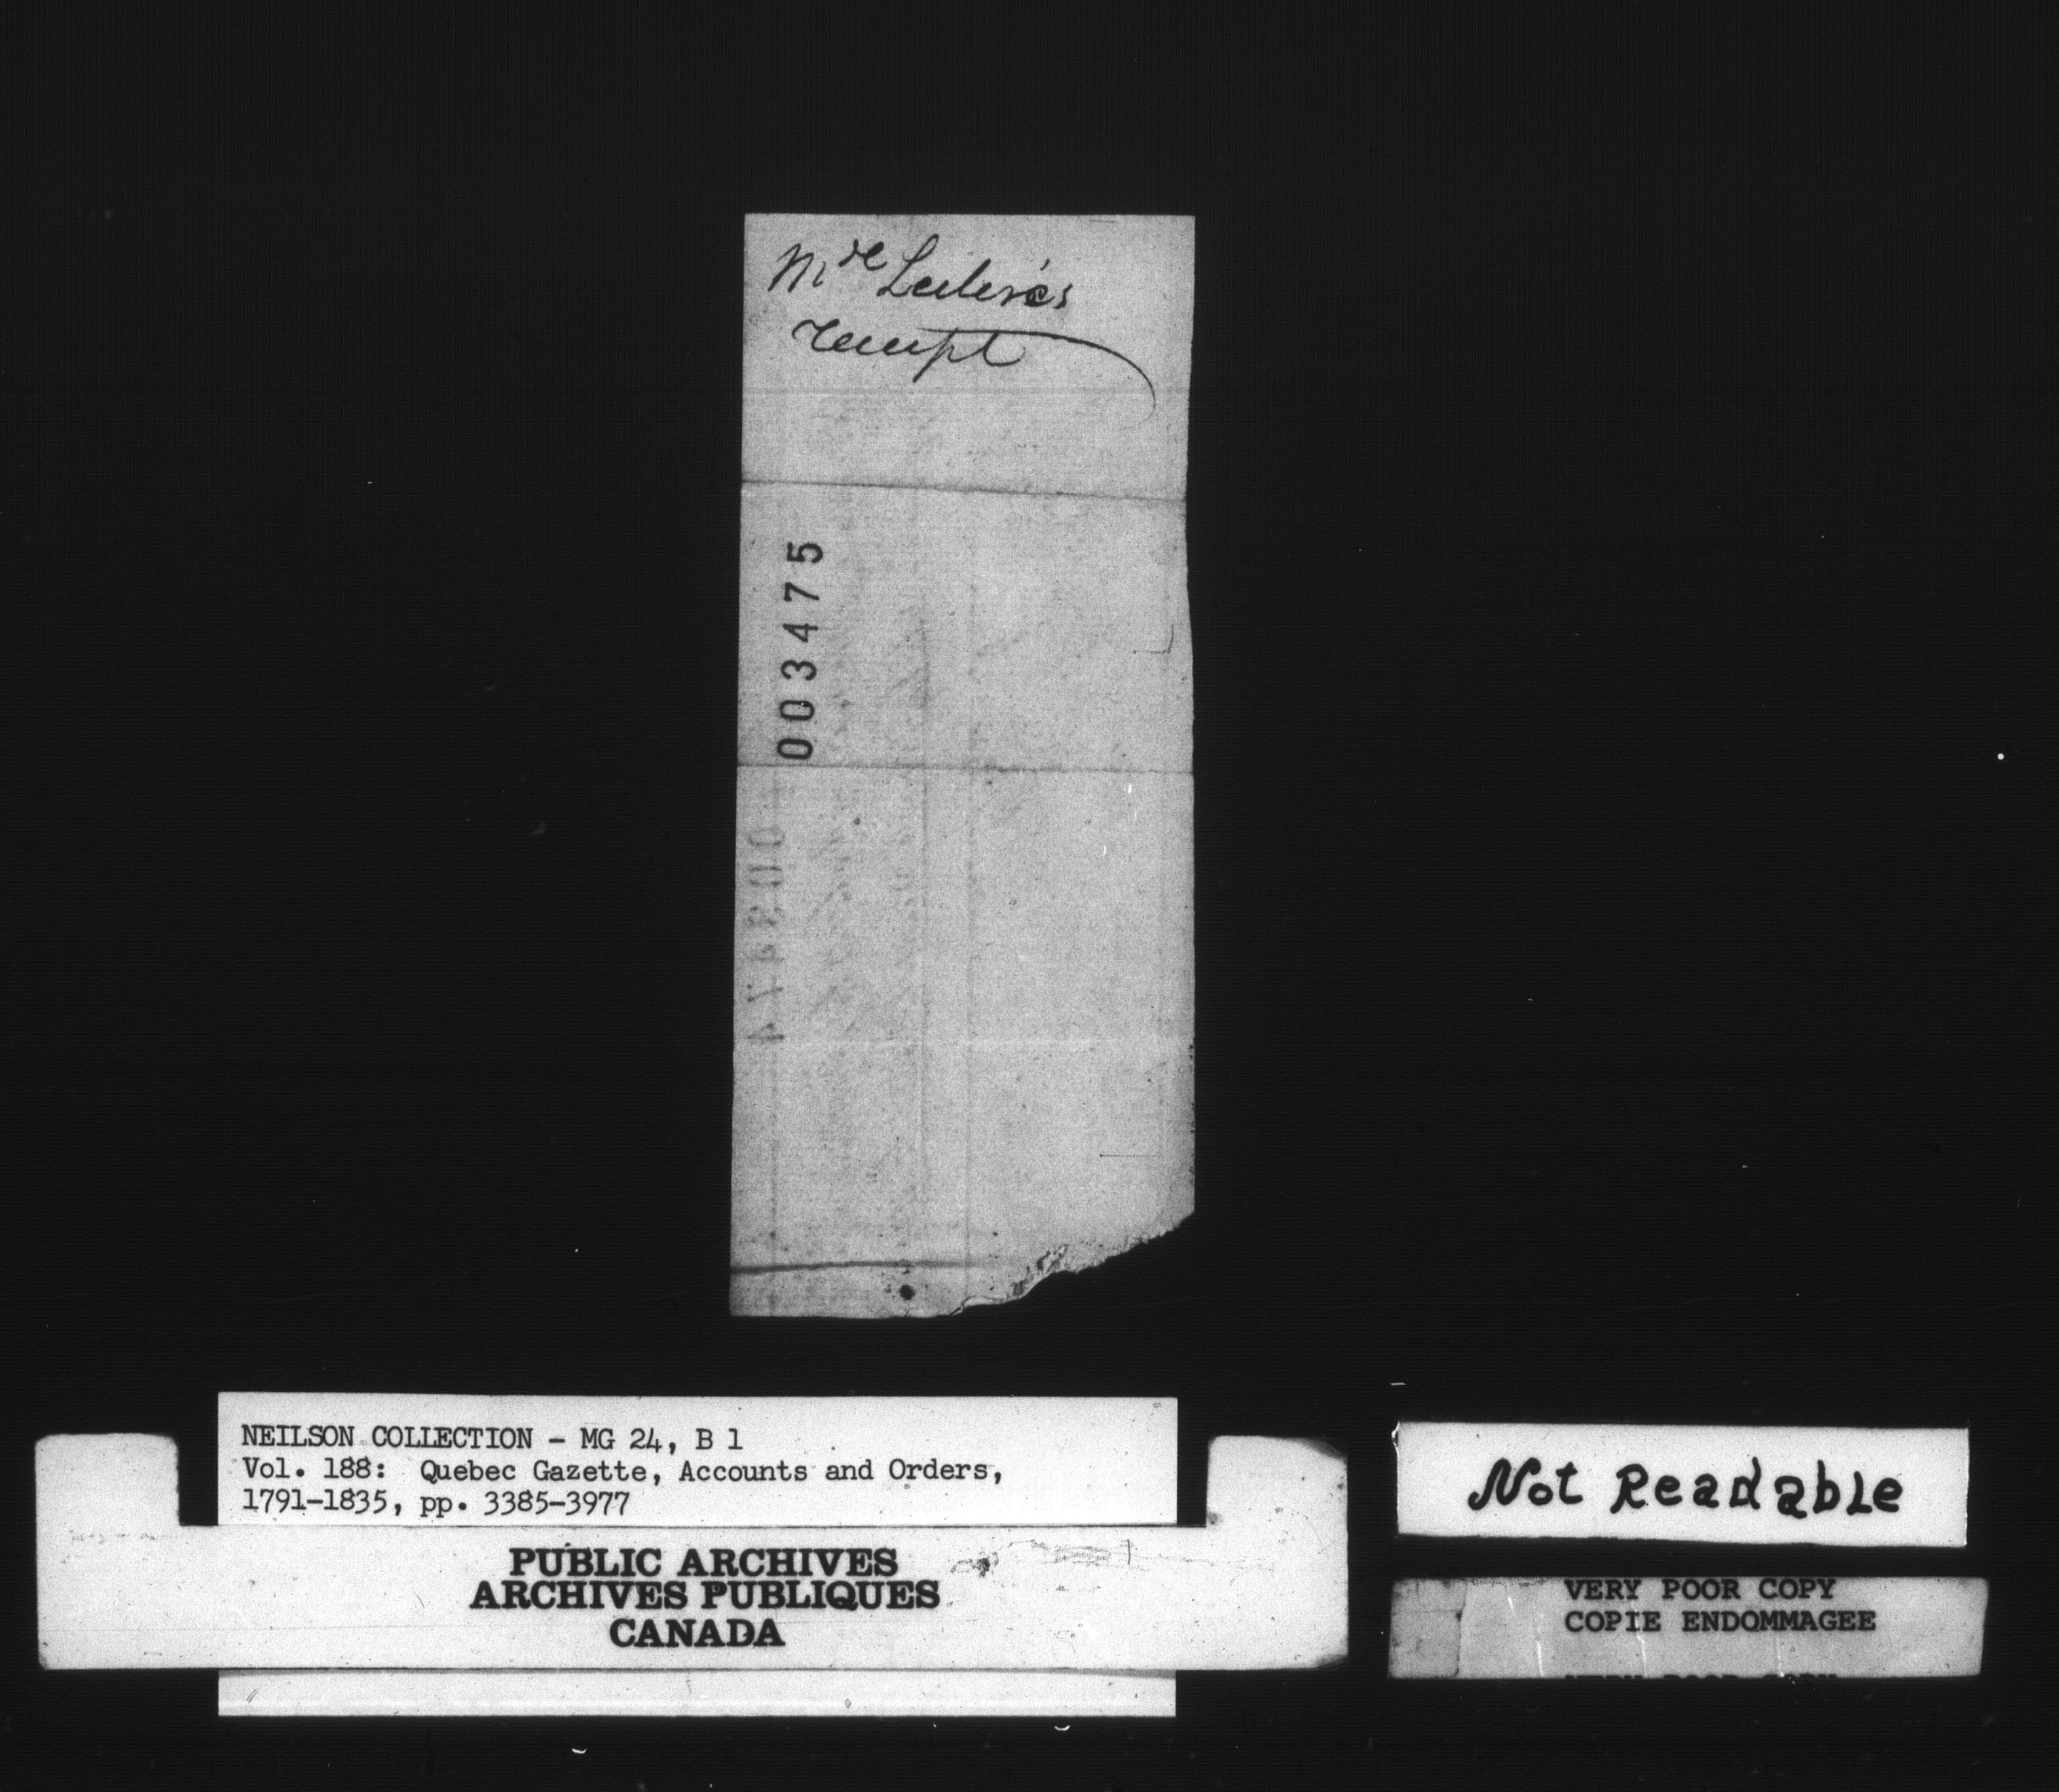 Mde Leclerc's
receipt
003475
003474
NEILSON COLLECTION - MG 24, B 1
Vol. 188: Quebec Gazette, Accounts and Orders,
1791-1835, pp. 3385-3977
PUBLIC ARCHIVES
ARCHIVES PUBLIQUES
CANADA
Not Readable
VERY POOR COPY
COPIE ENDOMMAGEE